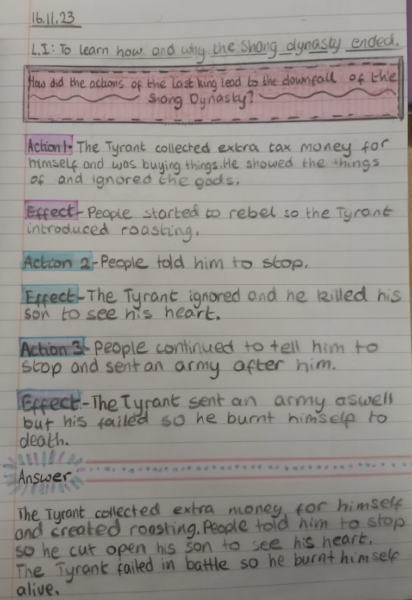 16.11.23
L.I: To learn how and why the Shang dynasty ended.
How did the actions of the last king lead to the downfall of the
Shang Dynasty?
Action 1- The Tyrant collected extra tax money for
himself and was buying things. He showed the things
of and ignored the gods.
Effect - People started to rebel so the Tyrant
introduced roasting.
Action 2 - People told him to stop.
Effect - The Tyrant ignored and he killed his
son to see his heart.
Action 3 - People continued to tell him to
stop and sent an army after him.
Effect - The Tyrant sent an army aswell
but his failed so he burnt himself to
death.
Answer
The Tyrant collected extra money for himself
and created roasting. People told him to stop
so he cut open his son to see his heart.
The Tyrant failed in battle so he burnt himself
alive.